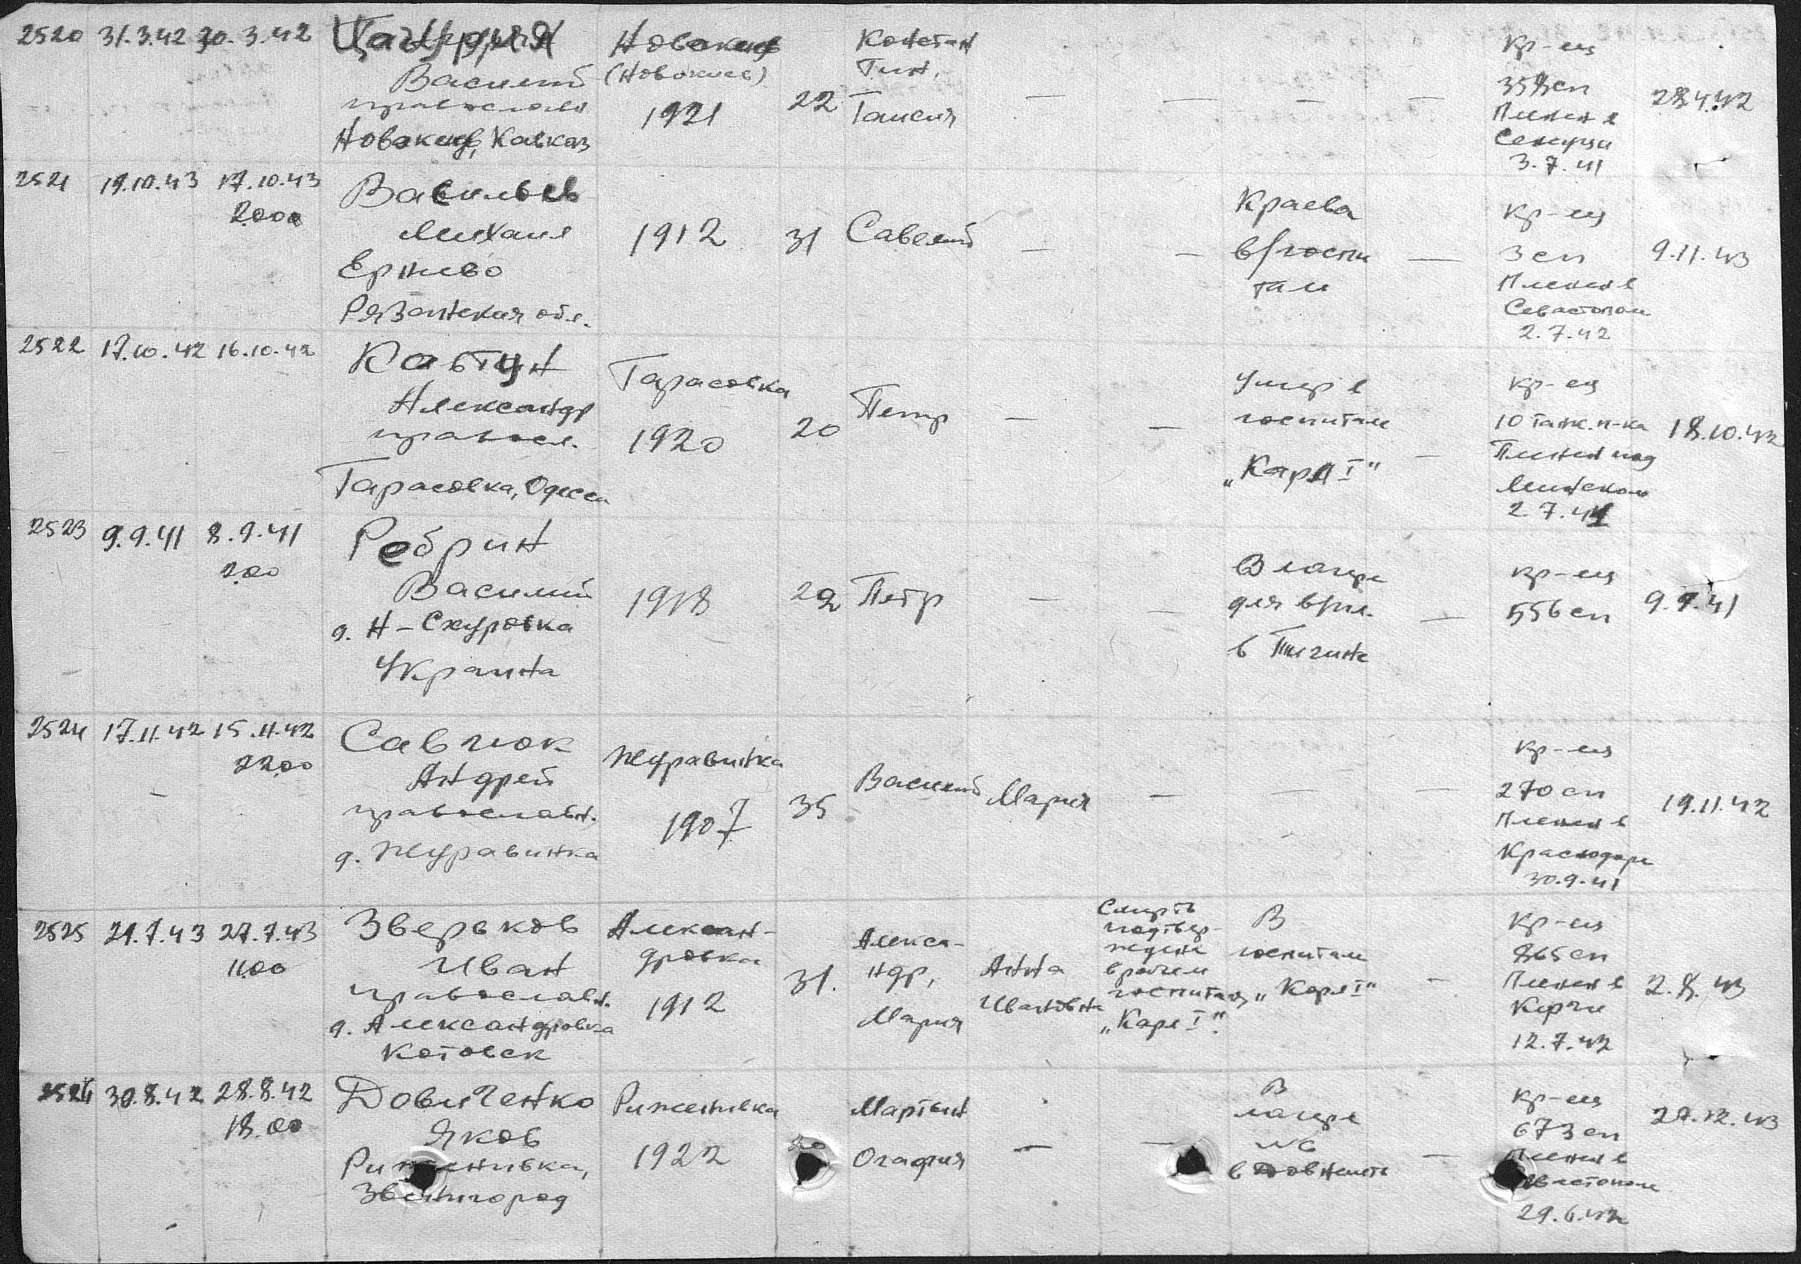 2520 31.3.42 30.3.42
Василий
Новакиев, Кавказ
(Новокиев)
1921
22
Констан
тин,
Таисия
— — — — —
кр-ец
359 сп
Пленен в
3.7.41
28.4.42
2521 19.10.43 17.10.43
20.00
Васильев
Михаил
Ернево
Рязанская обл.
1912
31
Савелий
— —
Краева
в/госпи
тали
—
кр-ец
3 сп
Пленен в
Севастополе
2.7.42
9.11.43
2522 17.10.42 16.10.42
Ковтун
Александр
правосл.
Тарасовка, Одесса
Тарасовка
1920
20
Петр
— —
Умер в
госпитале
„Карл I"
—
кр-ец
10 танк. п-ка
Пленен под
Минском
2.7.41
18.10.42
2523 9.9.41 8.9.41
2.00
Ребрин
Василий
д. Н-Схуровка
Украина
1918
22
Петр
— —
В лагере
для в/пл.
в Тигине
—
кр-ец
556 сп
9.9.41
2524 17.11.42 15.11.42
22.00
Савчюк
Андрей
православн.
д. Журавинка
Журавинка
1907
35
Василий
Мария
— — —
кр-ец
270 сп
Пленен в
Краснодаре
30.9.41
19.11.42
2525 29.7.43 27.7.43
11.00
Зверьков
Иван
православн.
д. Александровка
Котовск
Алексан-
дровка
1912
31.
Алекса-
ндр,
Мария
Анна
Ивановна
Смерть
подтвер-
ждена
врачем
госпиталя
„Карл I".
В
госпитале
„Карл I"
—
кр-ец
865 сп
Пленен в
Керчи
12.7.42
2.8.43
2526 30.8.42 28.8.42
18.00
Довиченко
Яков
Риженивка,
Звенигород
Риженивка
1922
20
Мартын
Огафия
— —
В
лагере
№6
—
кр-ец
673 сп
Пленен в
Севастополе
29.6.42
27.12.43